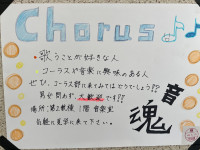 Chorus
・歌うことが好きな人
コーラスや音楽に興味のある人
ぜひ、コーラス部に来てみてはどうでしょう??
男女問わず、大歓迎です!!
場所:第2教棟 1階 音楽室
お気軽に見学に来て下さい。
音魂